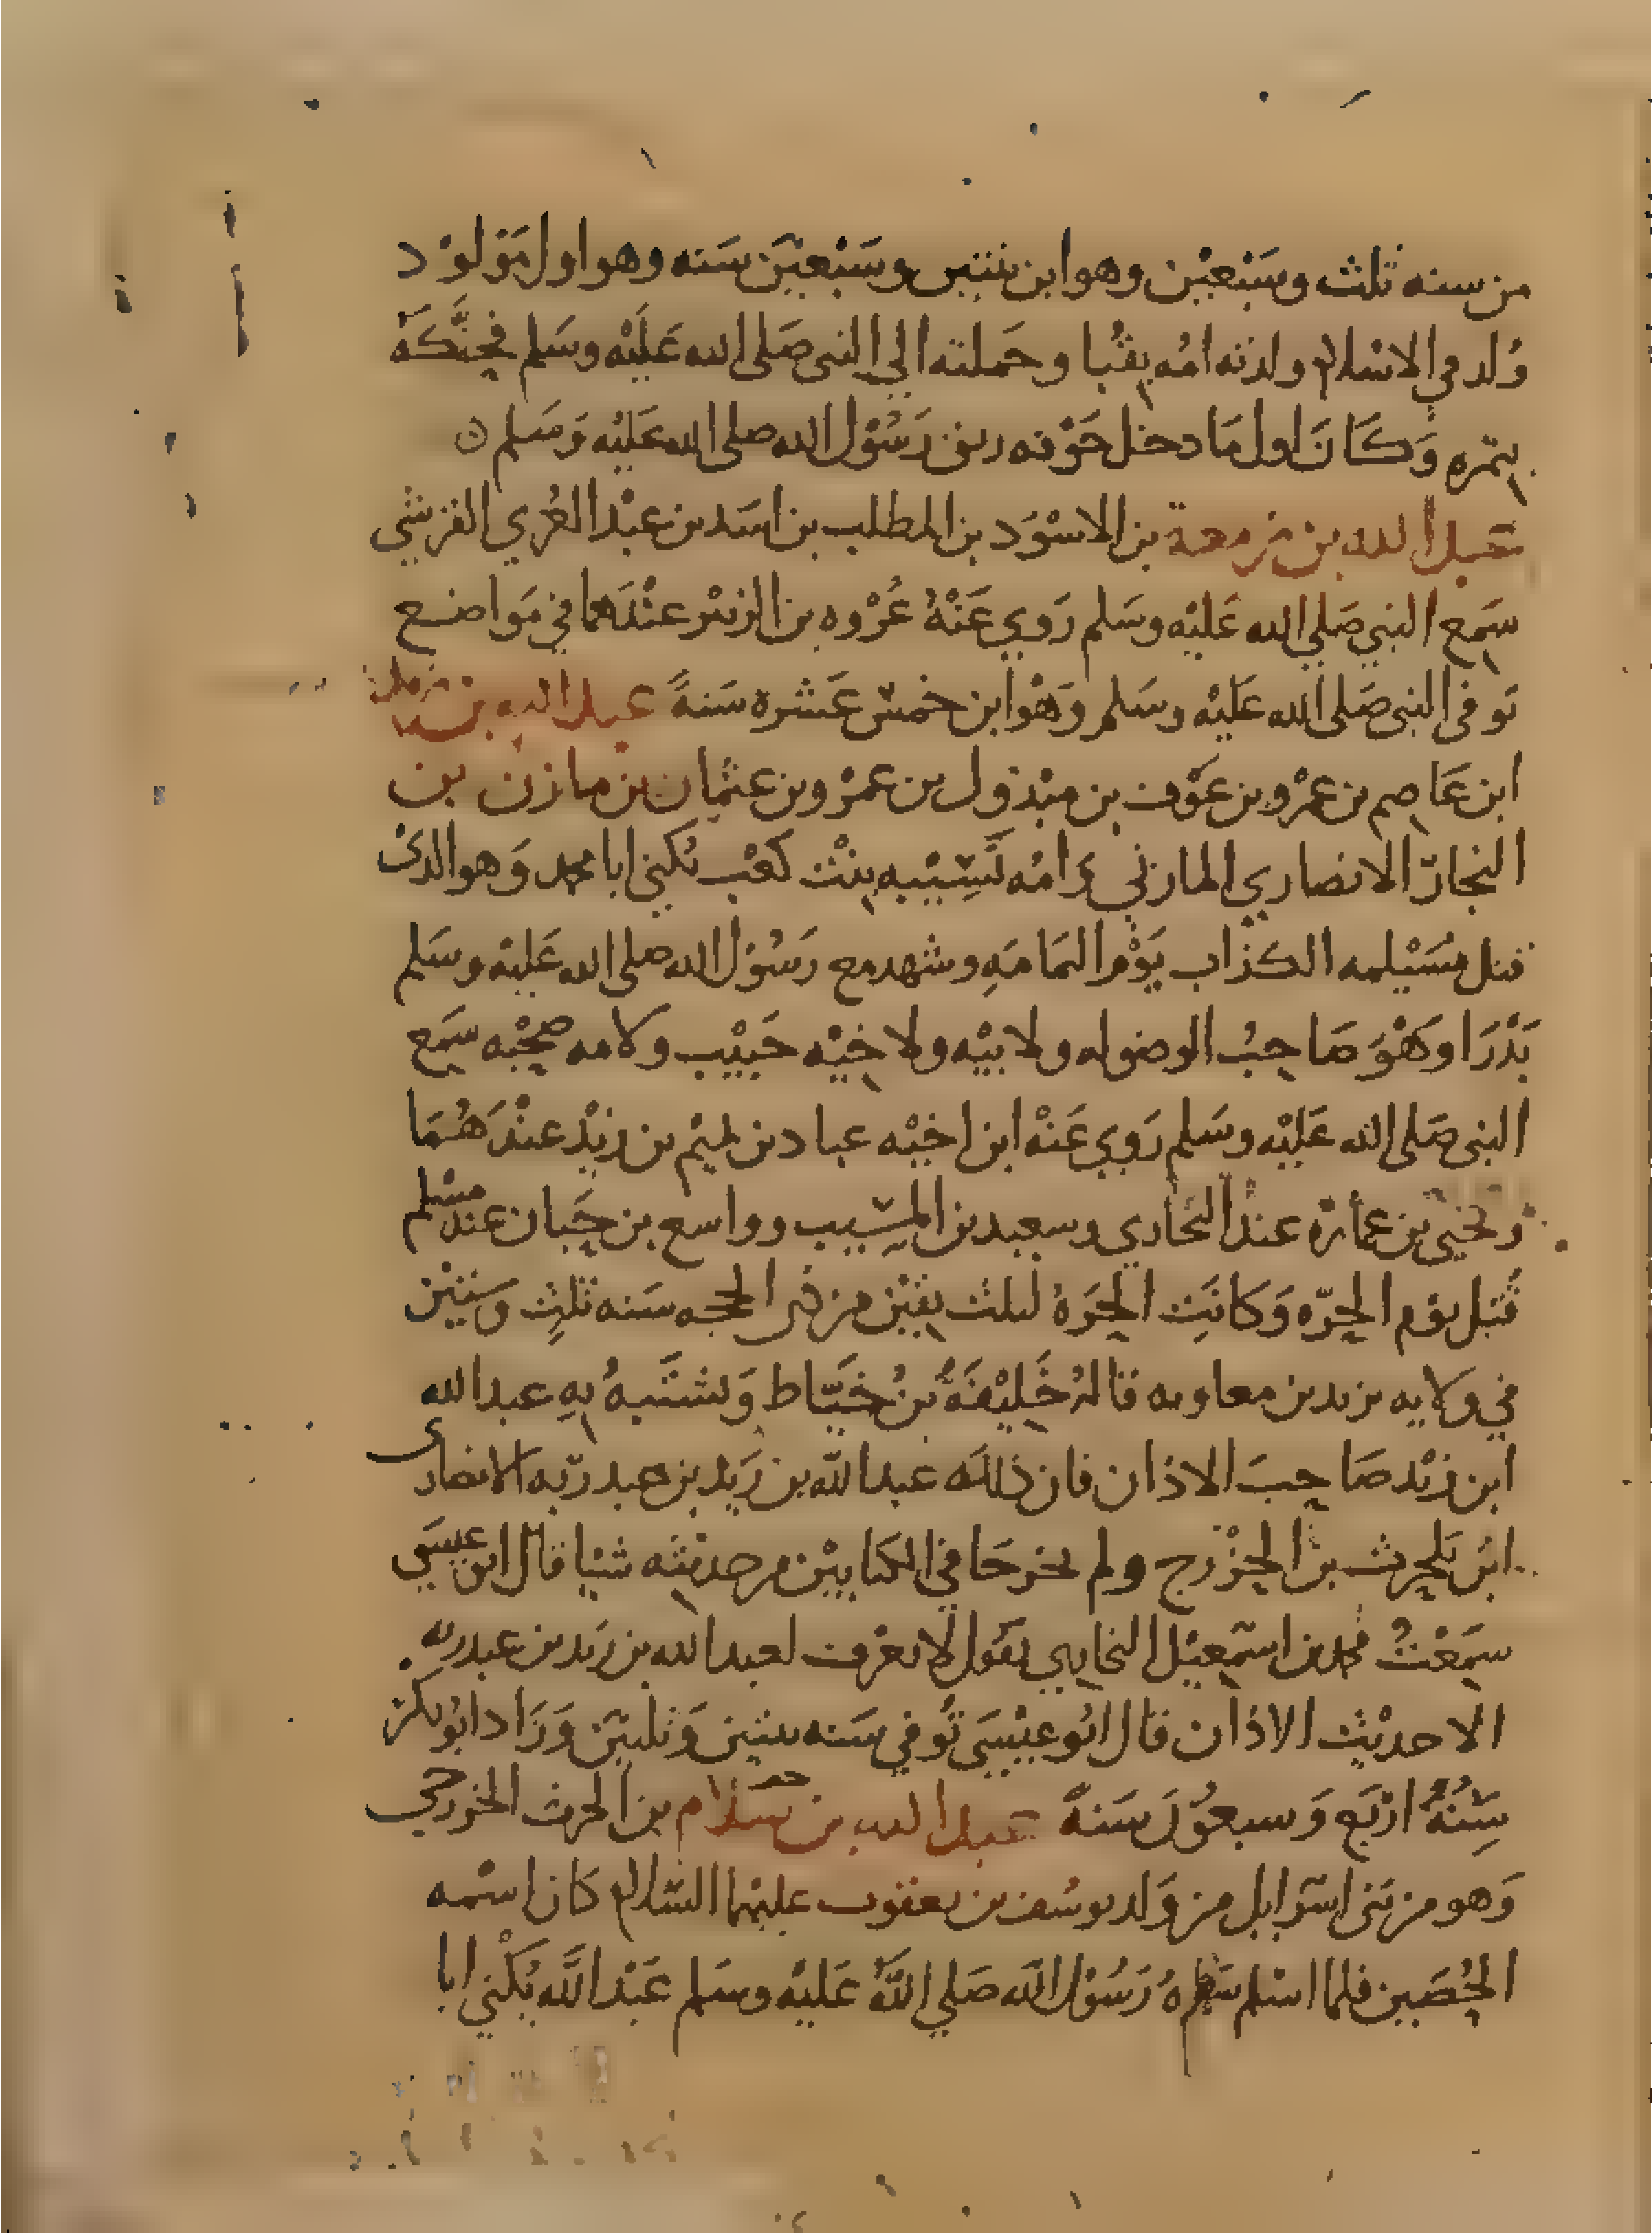 من سنه ثلث وسَبْعيْن وهو ابن ثنتين وسَبْعيْن سَنه وهو اول مَوْلوْد
وُلد في الاسْلام ولدته امُه بقُبا وحَملته الي النبي صَلى الله عَليْه وسَلم فحنَّكَهُ
بتمره وَكَانَ اول مَا دخل جَوْفه ريق رَسُوْل الله صلى الله عَليْه وَسَلم
عبد الله بن زمعة بن الاسْوَد بن المطلب بن اسَد بن عبْد العُزي القرشي
سَمِع النبي صَلي الله عَليْه وسَلم رَوي عَنْهُ عُرْوه بن الزبيْر عنْدَهما في مَواضع
توفي النبي صَلى الله عَليْه وسَلم وَهْو ابن خمسَ عَشره سَنةً عبد الله بن زيد
ابن عَاصِم بن عمْرو بن عَوْف بن مبْذول بن عمْرو بن عثمان بن مازن بن
النجارّ الانصاري المازني وامُه نَسِيْبه بنْت كعْب يُكني ابا محمد وَهو الذي
قتل مُسَيْلمه الكذاب يَوْم اليَمَامَهِ وشهد مع رَسُوْل الله صلى الله عَليْه وسَلم
بَدْرَا وَهْوَ صَاحبُ الوضو له ولابيْه ولاخيْه حَبيْب ولامه صحْبْه سَمِع
النبي صَلى الله عَليْه وسَلم رَوي عَنْه ابن اخيْه عباد بن تميْم بن زيْد عنْدَهُمَا
ويحْيَي بن عمارَة عنْد البخاري وسعيد بن المسَيب وواسع بن حَبان عند مسْلم
قُتِل يوْم الحرّه وَكانَتِ الحرَهُ لثلث بقيْن من ذي الحجه سَنه ثلثٍ وَستيْن
في ولايه يزيد بن معاويه قالهُ خَليْفَهُ بنُ خيَّاط وَيشتَبهُ بِهِ عبد الله
ابن زيْد صَاحبَ الاذان فان ذلكَ عبد الله بن زَيد بن عبد ربّه الانصاري
ابن بَلحرث بن الخزْرج ولم يخرجَا في الكتابيْن من حديْثه شيْا قال ابن عيسَي
سَمِعْتُ محمد بن اسمعيْل البخاري يقوْل لا يعْرف لعبد الله بن زَيد بن عبد ربه
الا حديْث الاذان قال ابُو عيْسَي تُوفي سَنه ثنتين وَثلثيْن وَزَاد ابُو بكرْ
سِنُهُ ارْبَع وَسبعُوْنَ سَنهً عبد الله بن سَلام بن الحرث الخزرجي
وَهو من بَني اسْرايل من وَلد يوسُف بن يعقوب عليْهما السَلام كَان اسْمه
الحُصَين فلما اسْلم سَماهُ رَسُوْل الله صَلي اللهُ عَليْه وسَلم عَبْد الله يُكْني ابا